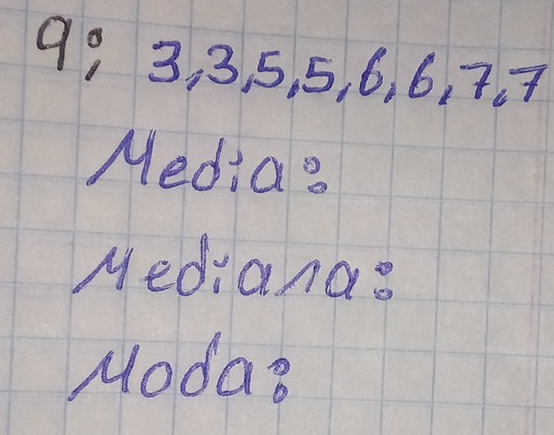 9; 3,3,5,5,6,6,7,7
Media:
Mediana:
Moda: